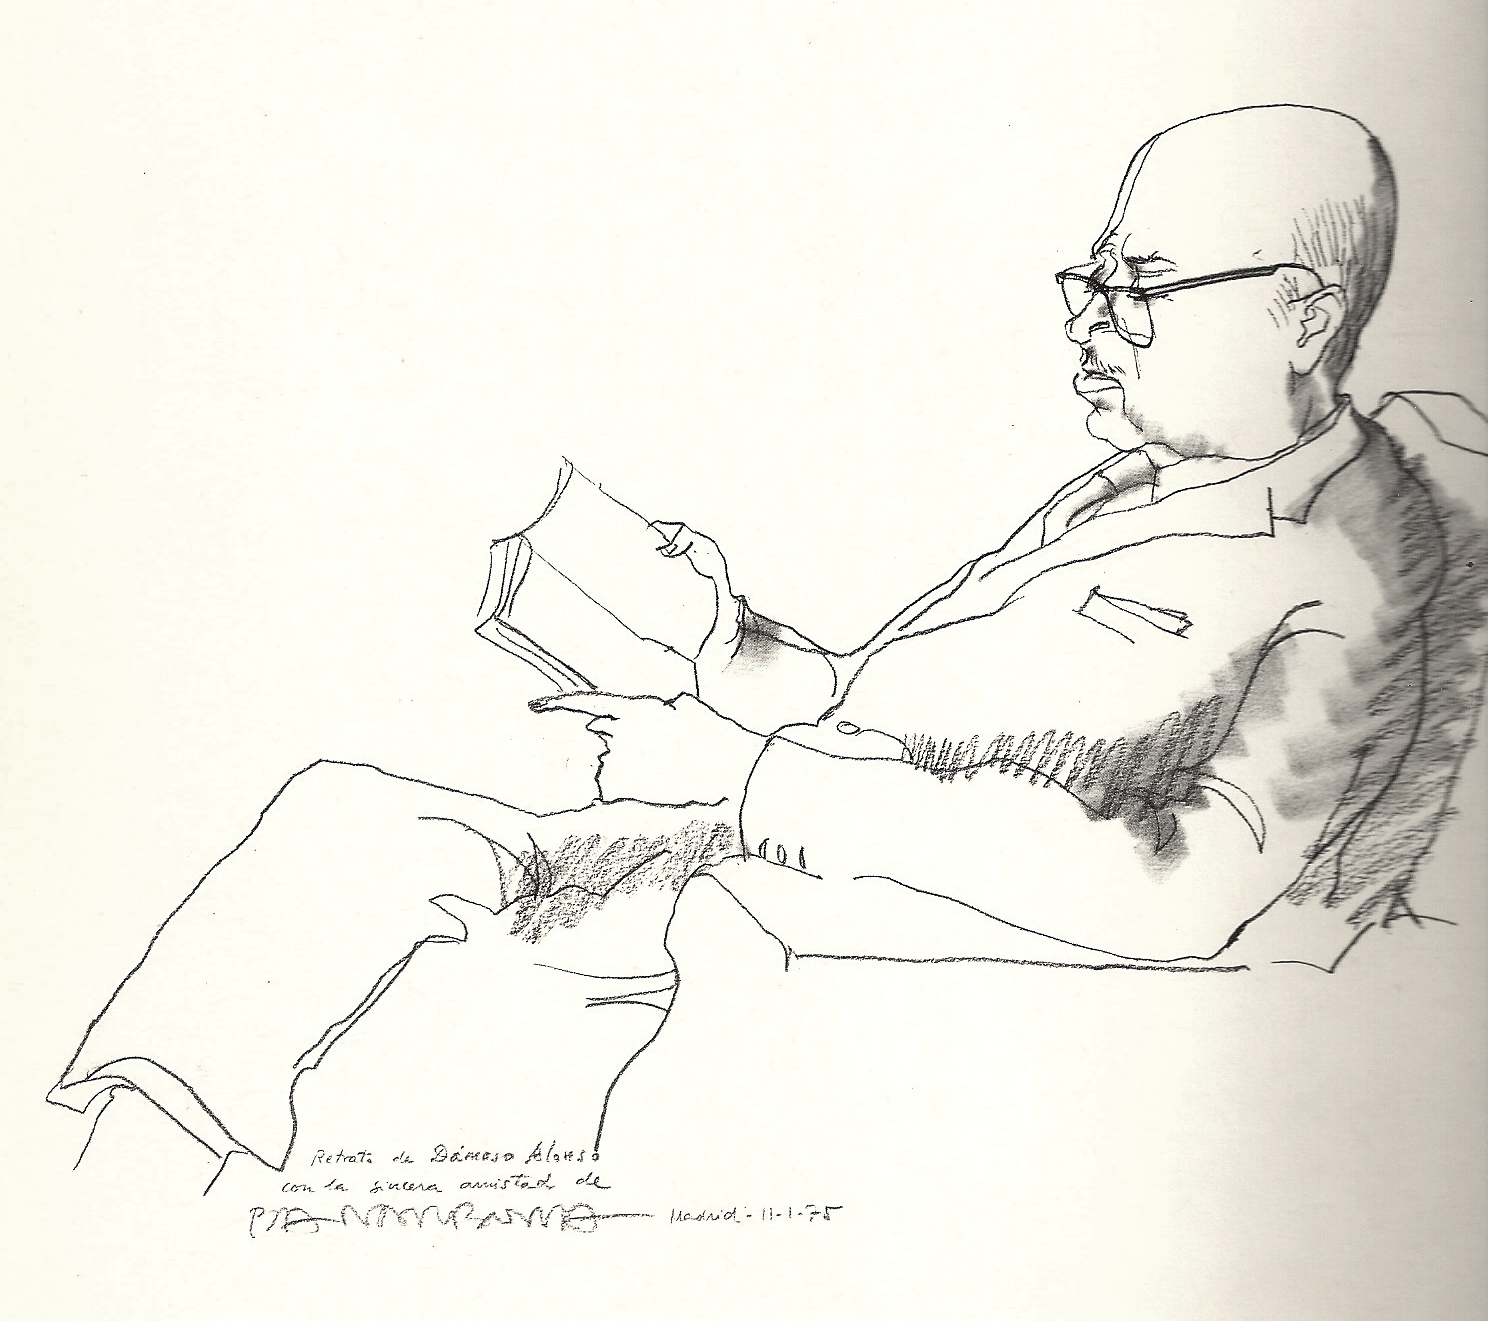 Retrato de Dámaso Alonso
con la sincera amistad de
Madrid - 11-1-75